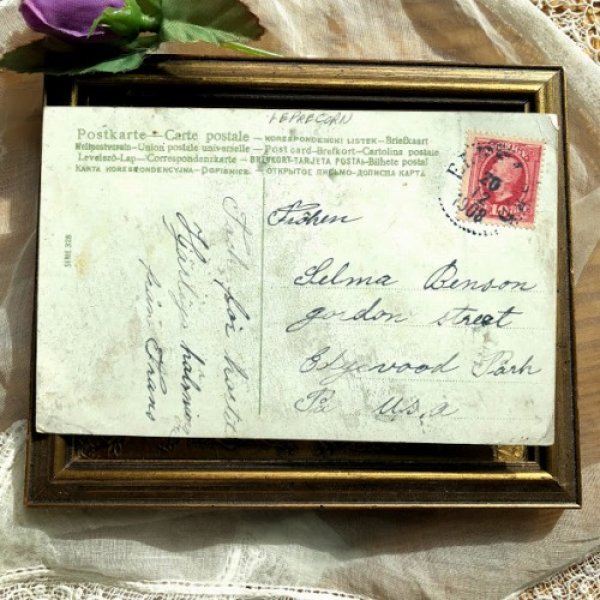 LEPRECORN
Postkarte — Carte postale — KORESPONDENCKI LISTEK — Briefkaart
Weltpostverein — Union postale universelle — Post card — Brefkort — Cartolina postale
Levelező-Lap — Correspondenzkarte — BREVKORT — TARJETA POSTAL — Bilhete postal
KARTA KORESPONDENCYJNA — DOPISNICE — ОТКРЫТОЕ ПИСЬМО — ДОПИСНА КАРТА
SERIE 328
Tack för kortet
Hjertliga hälsningar
från Frans
Fröken
Selma Benson
gordon street
Edgewood Park
Pa U.S.a
20
2
1908